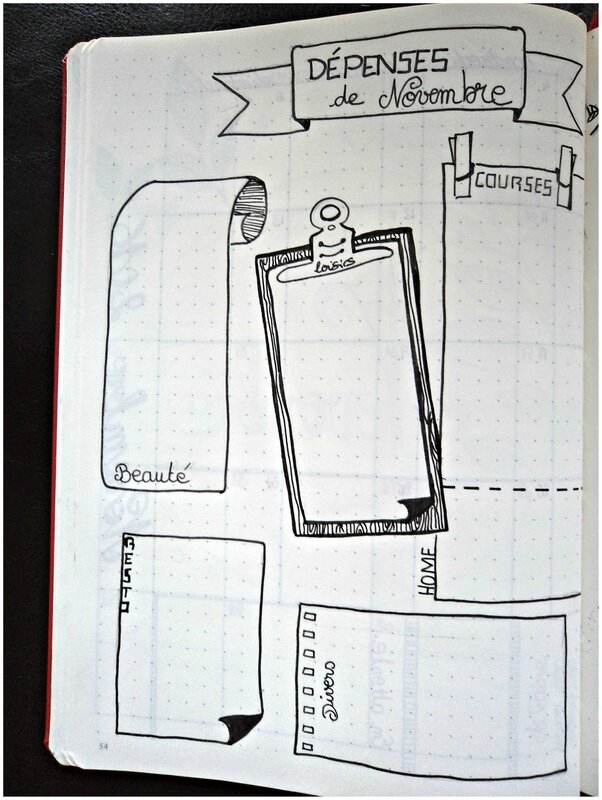 DÉPENSES
de Novembre
COURSES
loisirs
Beauté
RESTO
HOME
Divers
54